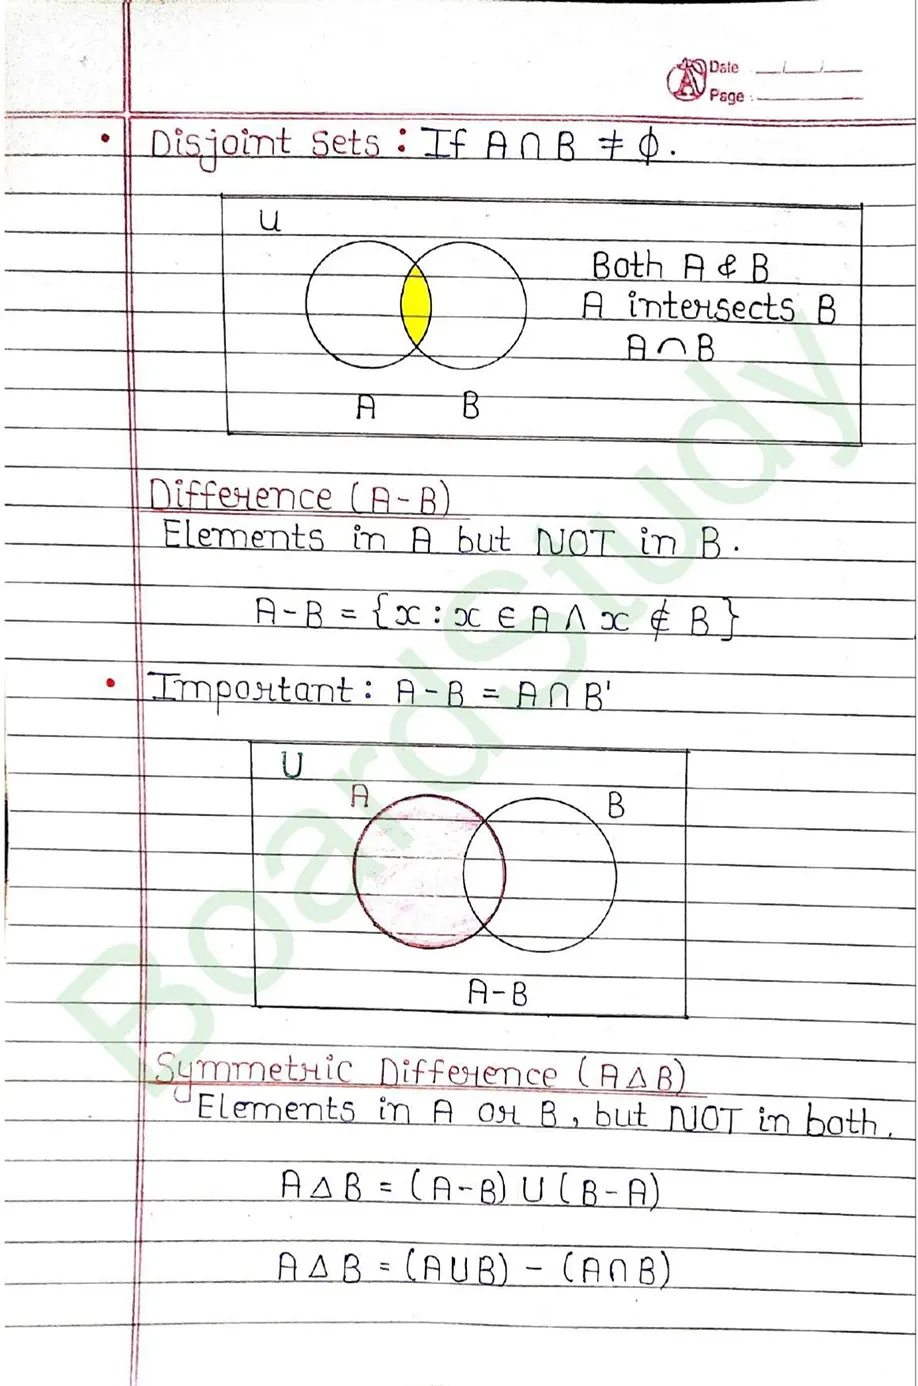 Date ___/___/___
Page : ___
• Disjoint Sets : If A ∩ B ≠ ϕ.
U
Both A & B
A intersects B
A ∩ B
A B
Difference (A - B)
Elements in A but NOT in B.
A - B = {x : x ∈ A ∧ x ∉ B}
• Important : A - B = A ∩ B'
U
A B
A - B
Symmetric Difference (A Δ B)
Elements in A or B, but NOT in both.
A Δ B = (A - B) ∪ (B - A)
A Δ B = (A ∪ B) - (A ∩ B)
BoardStudy